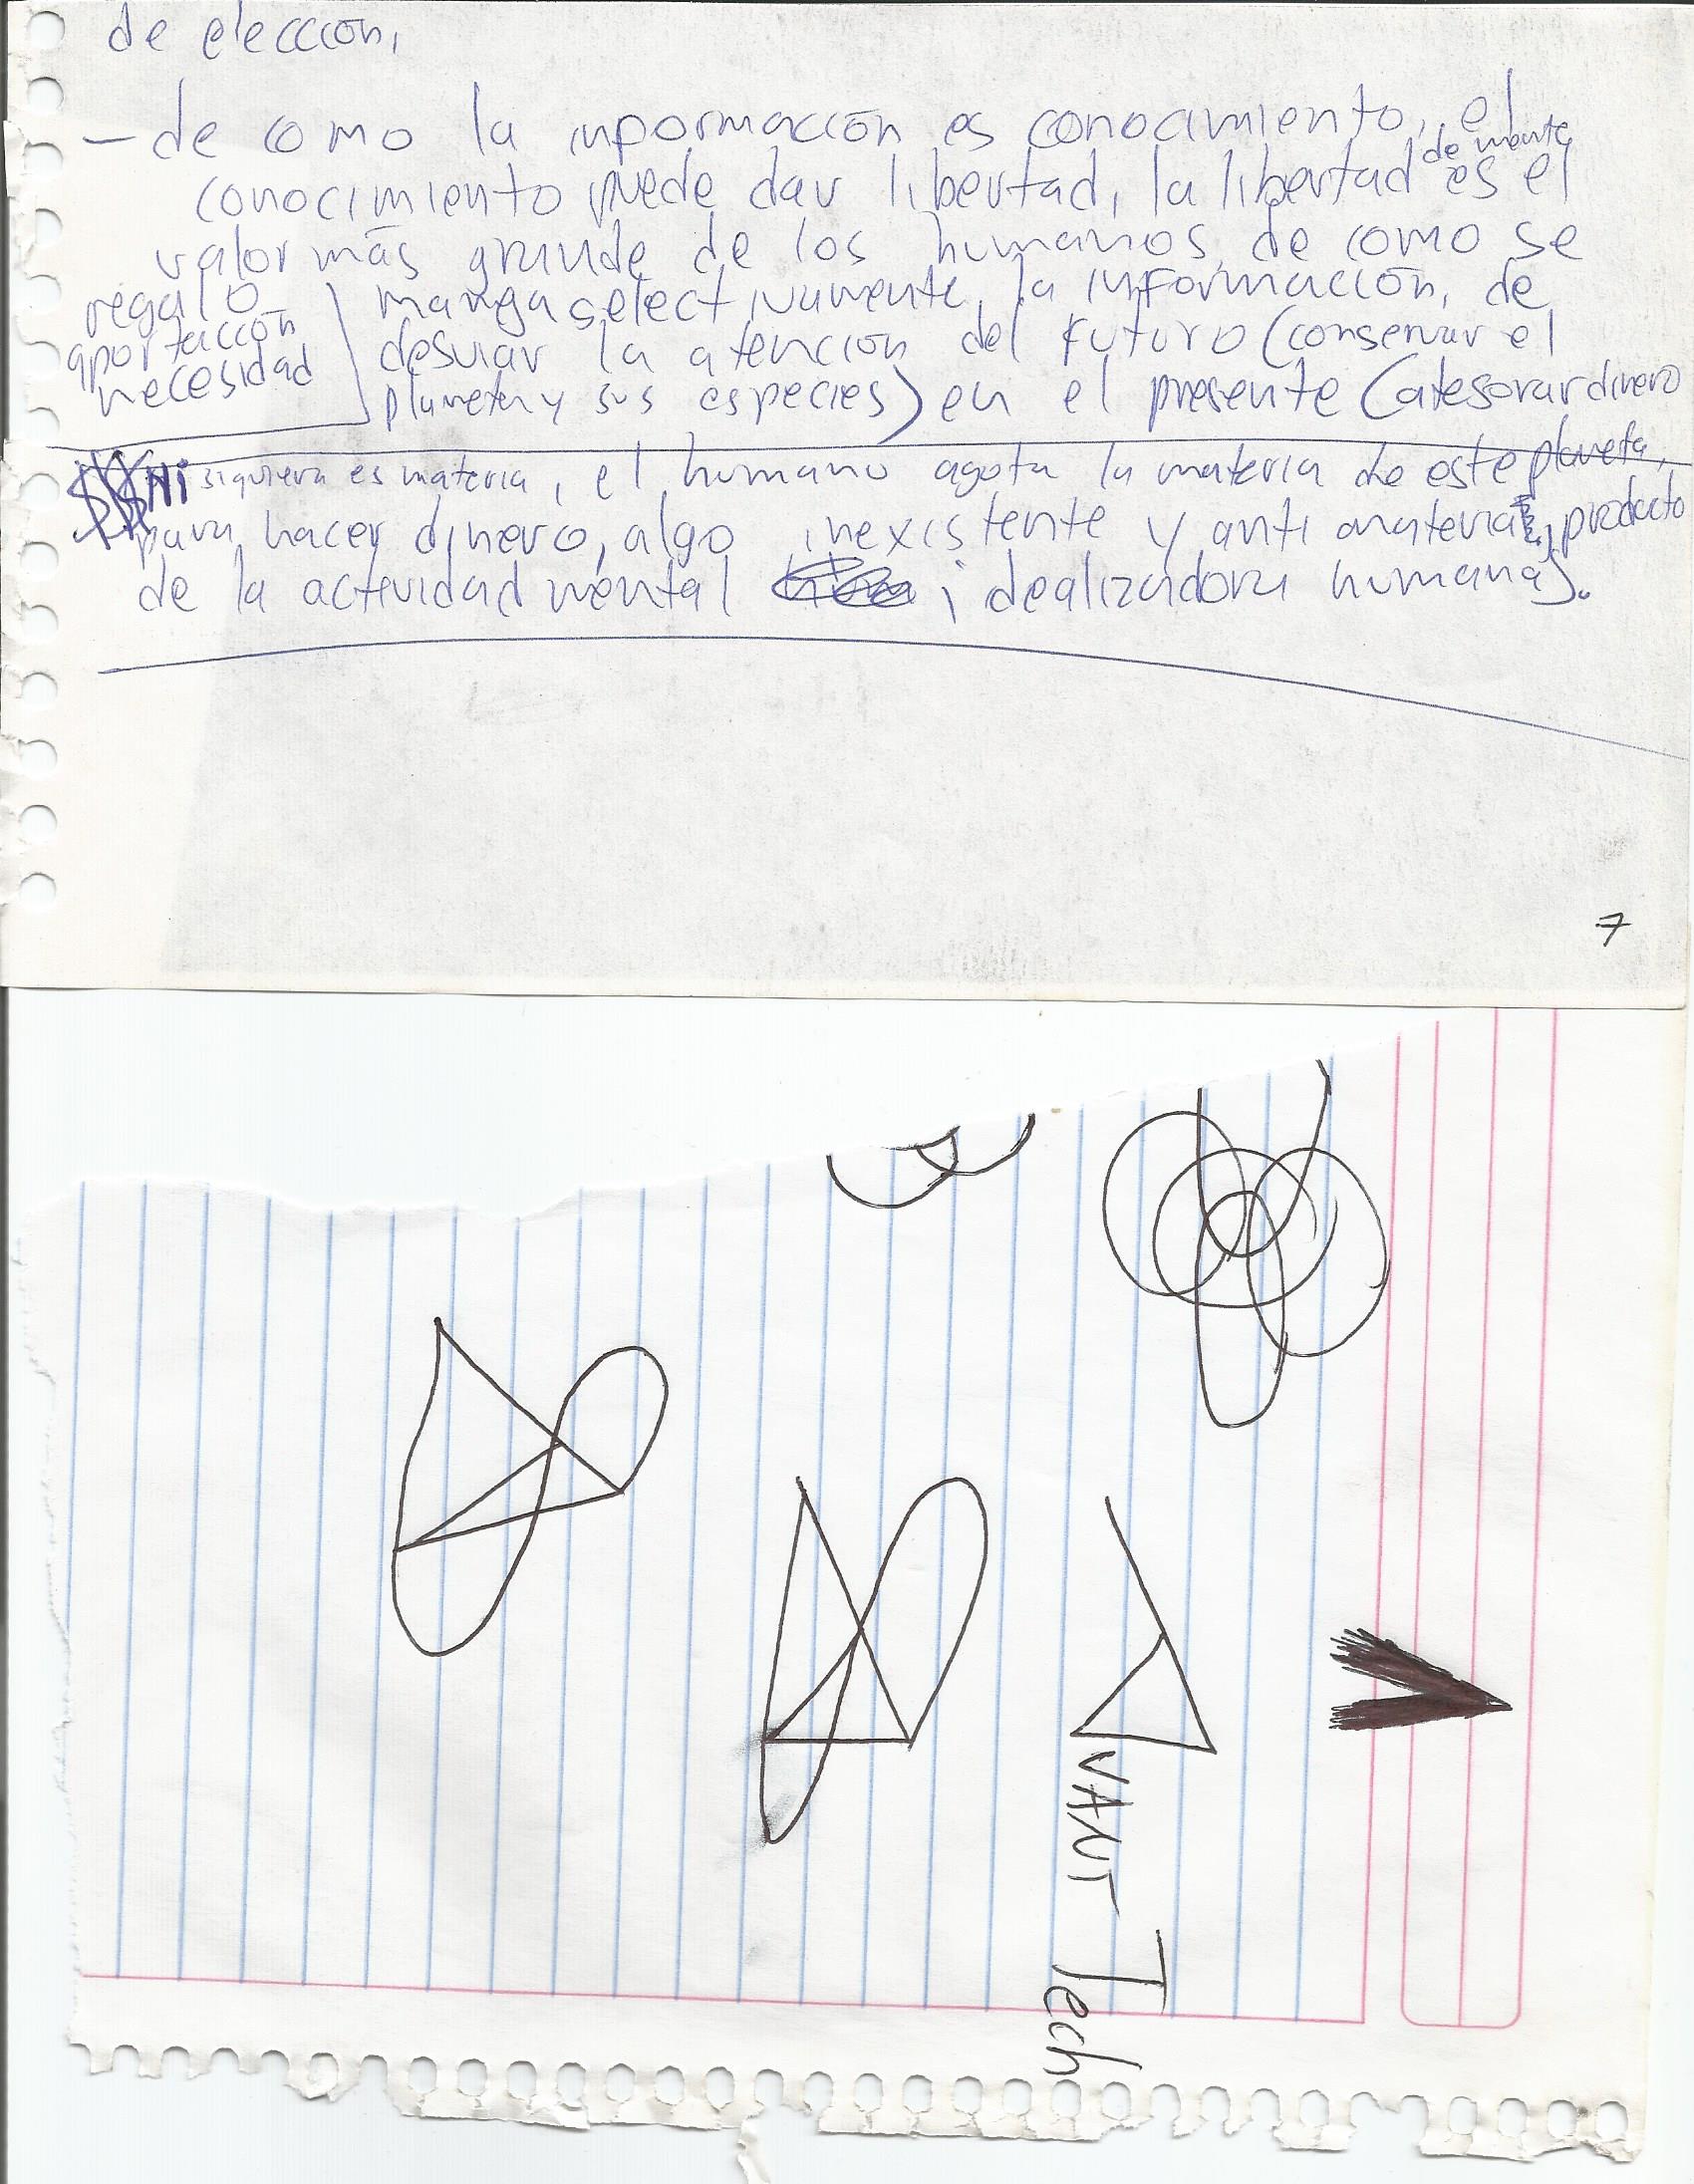 de elección,
– de como la información es conocimiento, el
conocimiento puede dar libertad, la libertad de mente es el
valor más grande de los humanos, de como se
maneja selectivamente, la información, de
desviar la atención del futuro (conservar el
planeta y sus especies) en el presente (atesorar dinero
regalo
aportación
necesidad
$$ Ni siquiera es materia, el humano agota la materia de este planeta,
para hacer dinero, algo inexistente y anti materia, producto
de la actividad mental idealizadora humana).
7
VANT Tech